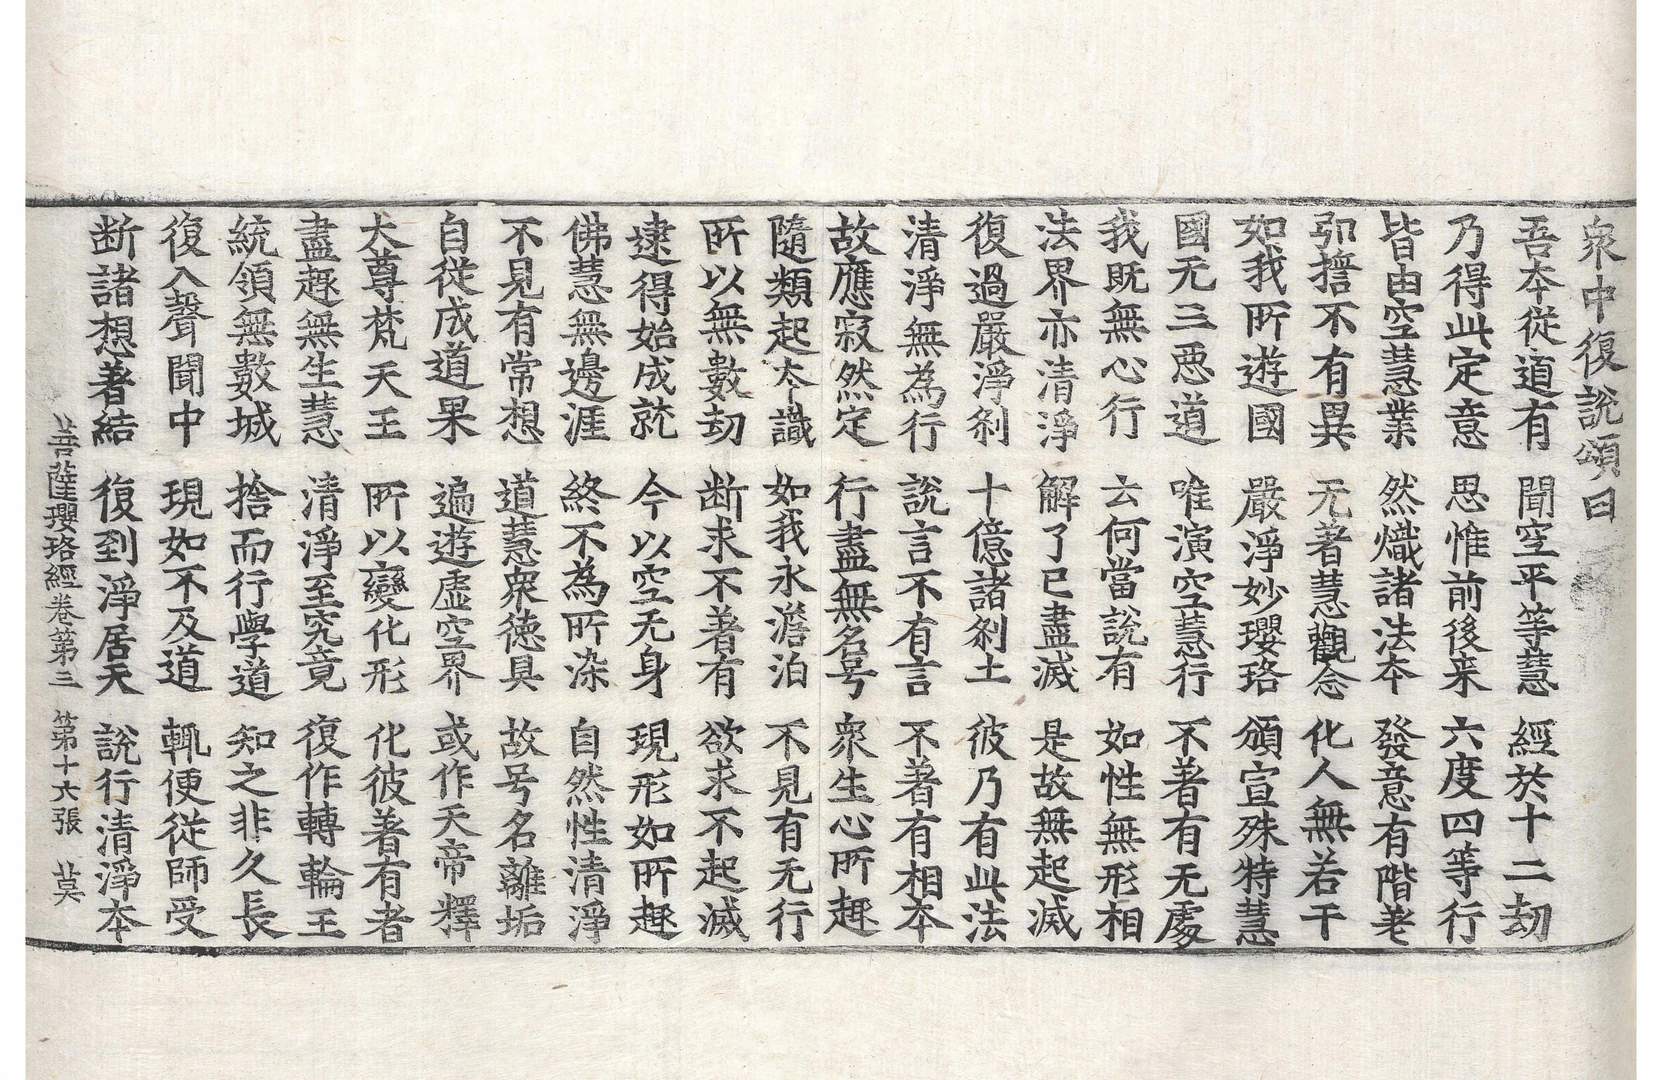 衆中復說頌曰
吾夲從道有　聞空平等慧　經於十二劫
乃得此定意　思惟前後来　六度四等行
皆由空慧業　然熾諸法夲　發意有階差
弘擔不有異　无著慧觀念　化人無若干
如我所遊國　嚴淨妙瓔珞　頒宣殊特慧
國无三惡道　唯演空慧行　不著有无處
我既無心行　云何當說有　如性無形相
法界亦清淨　解了已盡滅　是故無起滅
復過嚴淨刹　十億諸刹土　彼乃有此法
清淨無為行　說言不有言　不著有相夲
故應寂然定　行盡無名号　衆生心所趣
隨類起夲識　如我永澹泊　不見有无行
所以無數劫　断求不著有　欲求不起滅
逮得始成就　今以空无身　現形如所趣
佛慧無邊涯　終不為所染　自然性清淨
不見有常想　道慧衆徳具　故号名離垢
自從成道果　遍遊虛空界　或作天帝釋
大尊梵天王　所以變化形　化彼著有者
盡趣無生慧　清淨至究竟　復作轉輪王
統領無數城　捨而行學道　知之非久長
復入聲聞中　現如不及道　輒便從師受
断諸想著結　復到淨居天　說行清淨夲
菩薩瓔珞經卷第三　第十六張　莫